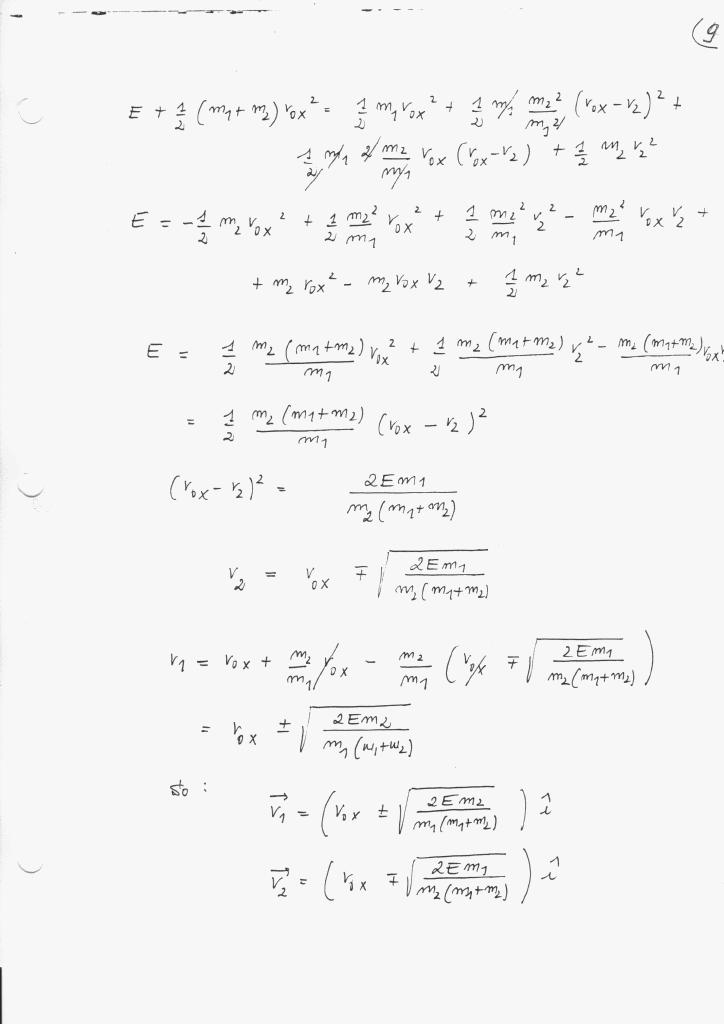 (9
E + 1/2 (m₁ + m₂) v₀ₓ² = 1/2 m₁ v₀ₓ² + 1/2 m₁ m₂²/m₁² (v₀ₓ - v₂)² +
1/2 m₁ 2 m₂/m₁ v₀ₓ (v₀ₓ - v₂) + 1/2 m₂ v₂²
E = -1/2 m₂ v₀ₓ² + 1/2 m₂²/m₁ v₀ₓ² + 1/2 m₂²/m₁ v₂² - m₂²/m₁ v₀ₓ v₂ +
+ m₂ v₀ₓ² - m₂ v₀ₓ v₂ + 1/2 m₂ v₂²
E = 1/2 m₂(m₁+m₂)/m₁ v₀ₓ² + 1/2 m₂(m₁+m₂)/m₁ v₂² - m₂(m₁+m₂)/m₁ v₀ₓ v
= 1/2 m₂(m₁+m₂)/m₁ (v₀ₓ - v₂)²
(v₀ₓ - v₂)² = 2Em₁/m₂(m₁+m₂)
v₂ = v₀ₓ ∓ √(2Em₁/m₂(m₁+m₂))
v₁ = v₀ₓ + m₂/m₁ v₀ₓ - m₂/m₁ (v₀ₓ ∓ √(2Em₁/m₂(m₁+m₂)))
= v₀ₓ ± √(2Em₂/m₁(m₁+m₂))
so :
v⃗₁ = (v₀ₓ ± √(2Em₂/m₁(m₁+m₂))) î
v⃗₂ = (v₀ₓ ∓ √(2Em₁/m₂(m₁+m₂))) î